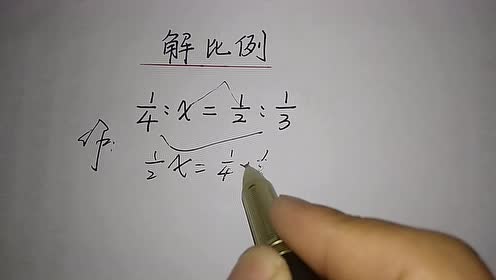 解比例
1/4 : x = 1/2 : 1/3
解:
1/2 x = 1/4